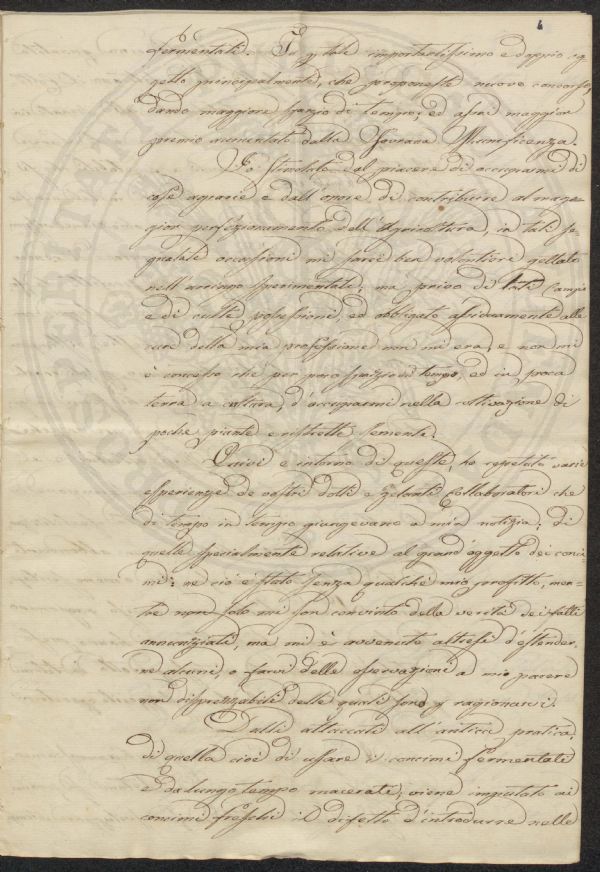 6
fermentati. In q tale importantissimo e doppio og-
getto principalmente, che proponeste nuovo concorso,
dando maggiore spazio di tempo, ed assai maggior
premio aumentato dalla Sovrana Munificenza.
Io stimolato dal piacere di occuparmi di
cose agrarie e dall' onore di contribuire al mag-
gior perfezionamento dell' Agricoltura, in tali se-
gnalate occasioni mi sarei ben volentieri gettato
nell' arringo sperimentale; ma privo di
e di culte possessioni, ed obbligato assiduamente alle
cure della mia professione non mi era, e non mi
è concesso che per poco spazio di tempo, ed in poca
terra a coltura, d'occuparmi nella coltivazione di
poche piante e ristrette sementi.
Quivi e intorno di queste, ho repetuto varie
esperienze de vostri dotti e zelanti collaboratori che
di tempo in tempo giungevano a mia notizia; di
quelle specialmente relative al grand' oggetto dei conci-
mi: ne ciò è stato senza qualche mio profitto, men-
tre non solo mi son convinto della verità dei fatti
annunziati, ma mi è avvenuto altresì d'estender-
ne alcuni, o farvi delle osservazioni a mio parere
non disprezzabili delle quali sono q ragionarvi.
Dalli attaccati all' antica pratica,
di quella cioè di usare i concimi fermentati
e da lungo tempo macerati; viene imputato ai
concimi freschi il difetto d'introdurre nelle